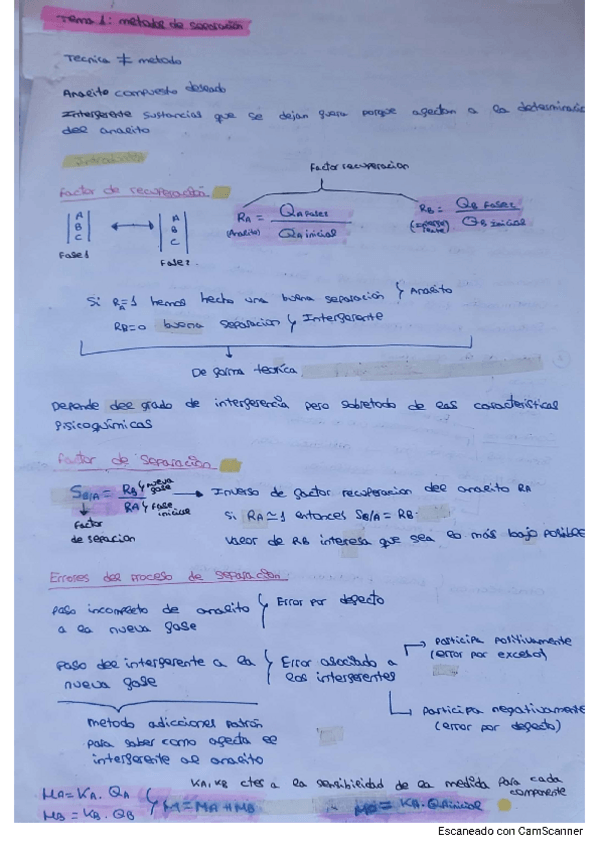 Tema 1: metodos de separación
Tecnica ≠ metodo
Analito compuesto deseado
Interferente sustancias que se dejan fuera porque afectan a la determinació
del analito
Factor recuperacion
Factor de recuperación
A B C ↔ A B C
Fase 1
Fase 2
RA = QA Fase2 / QA inicial
(Analito)
RB = QB Fase2 / QB inicial
Si RA=1 hemos hecho una buena separación } Analito
RB=0 buena separacion } Interferente
De forma teorica
Depende del grado de interferencia pero sobretodo de las caracteristicas
fisicoquímicas
Factor de separación
SB/A = RB } nueva fase / RA } fase inicial → Inverso de factor recuperacion del analito RA
Factor de separacion
Si RA ≃ 1 entonces SB/A = RB.
valor de RB interesa que sea lo más bajo posible
Errores del proceso de separación
paso incompleto de analito a la nueva fase } Error por defecto
paso del interferente a la nueva fase } Error asociado a los interferentes
Participa positivamente (error por exceso)
Participa negativamente (error por defecto)
metodo adicciones patrón
para saber como afecta el
interferente al analito
KA, KB ctes a la sensibilidad de la medida para cada componente
MA = KA · QA
MB = KB · QB
M = MA + MB
= KA · QA inicial
Escaneado con CamScanner